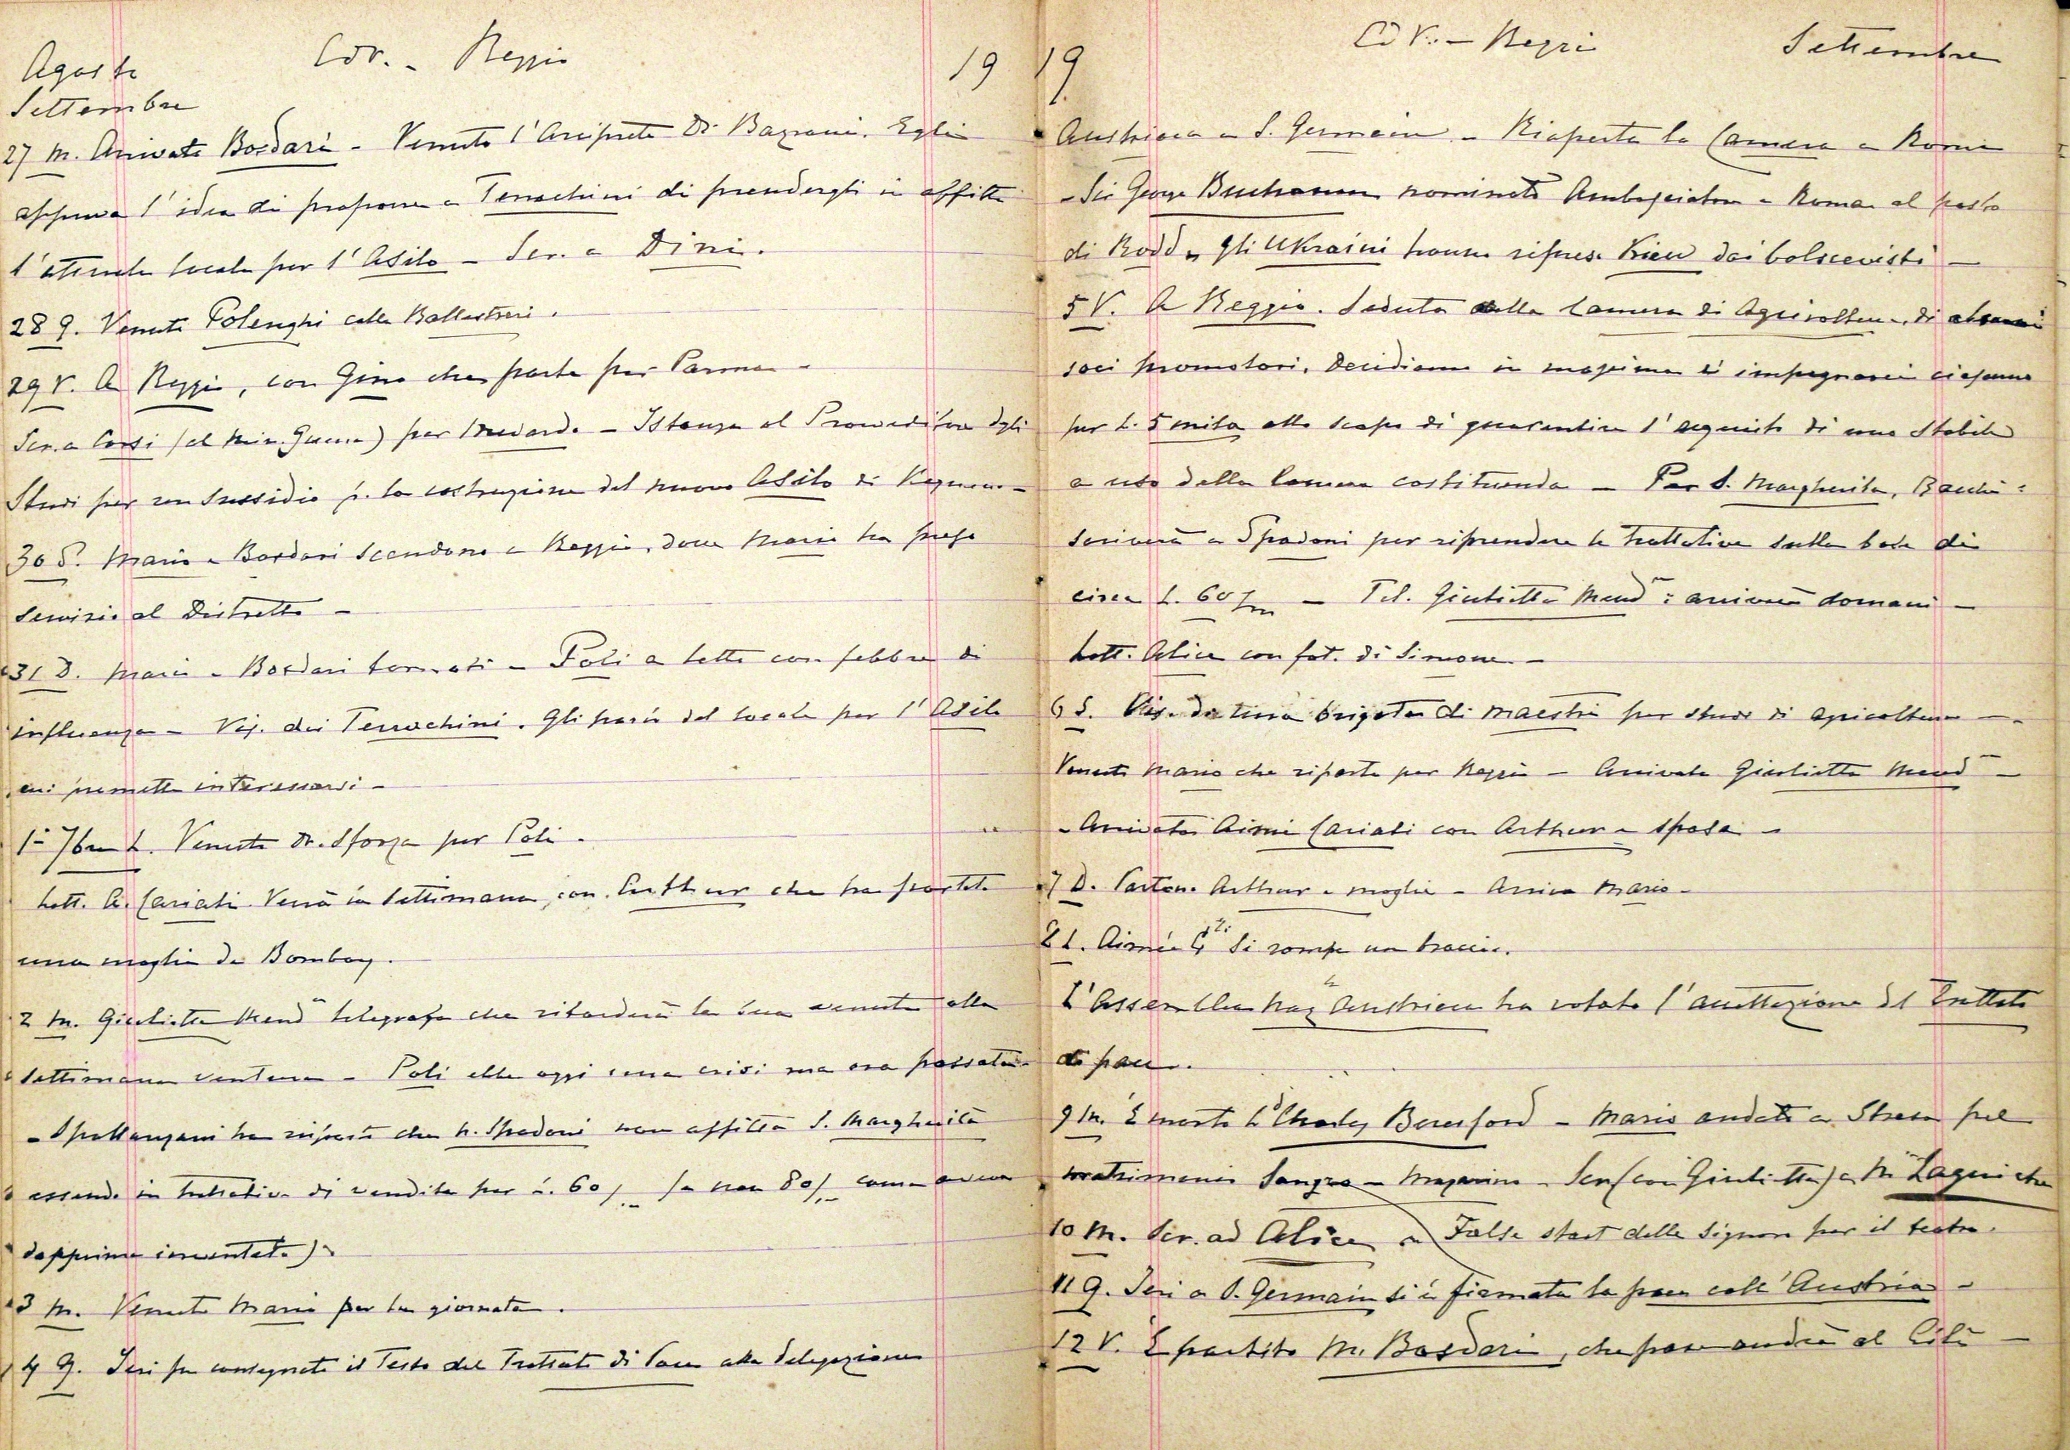 Agosto Cdv. - Reggio 19
Settembre
27 M. Arrivato Bosdari - Venuto l'Arciprete di Bazzani. Egli
approva l'idea di proporre a Terrachini di prendergli in affitto
l'attuale locale per l'Asilo - Scr. a Dini.
28 G. Venuti Polenghi colle Ballestrieri.
29 V. A Reggio, con Gino che parte per Parma -
Scr. a Corsi (al Min. Guerra) per Medardo - Istanza al Provveditore degli
Studi per un Sussidio p. la costruzione del nuovo Asilo di
30 S. Mario e Bosdari scendono a Reggio, dove Mario ha preso
servizio al Distretto -
31 D. Mario e Bosdari tornati - Poli a letto con febbre di
influenza - Vis. dei Terrachini. Gli parlo del locale per l'Asilo
cui promette interessarsi -
1° 7bre L. Venuto Dr. Sforza per Poli -
Lett. A. Cariati. Verrà in settimana, con Arthur che ha portato
una moglie da Bombay.
2 M. Giulietta Mend telegrafa che ritarderà la sua venuta alla
settimana ventura - Poli ebbe oggi una crisi ma ora passata -
- Spallanzani ha risposto che h. Spadoni non affitta S. Margherita
essendo in trattative di vendita per L. 60/.- (e non 80/.- come aveva
dapprima inventato) -
3 M. Venuto Mario per la giornata.
4 G. Ieri fu consegnato il Testo del Trattato di Pace alla delegazione
19 Cdv. - Reggio Settembre
Austriaca a S. Germain - Riaperta la Camera a Roma
- Sir George Buchanan nominato Ambasciatore a Roma al posto
di Rodd - Gli Ukraini hanno ripreso Kiew dai bolscevisti -
5 V. A Reggio. Seduta della Camera di Agricoltura, di alcuni
soci promotori. Decidiamo in massima di impegnarci ciascuno
per L. 5 mila allo scopo di guarantire l'acquisto di uno stabile
a uso della Camera costituenda - Per S. Margherita,
scriverà a Spadoni per riprendere le trattative sulla base di
circa L. 60/m - Tel. Giulietta Mend: arriverà domani -
Lett. Alice con fot. di Simone -
6 S. Vis. da una brigata di maestri per studi di apicoltura -
Venuto Mario che riparte per Reggio - Arrivata Giulietta Mend -
- Arrivata Aimée Cariati con Arthur e sposa -
7 D. Partono Arthur e moglie - Arriva Mario -
8 L. Aimée C si rompe un braccio.
L'Assemblea Naz. Austriaca ha votato l'accettazione del Trattato
di pace.
9 M. È morto Ld Charles Beresford - Mario andato a Stresa pel
matrimonio Sangro - Mazarino - Scr. (con Giulietta) a M. Lagniche
10 M. Scr. ad Alice - False start delle signore per il teatro.
11 G. Ieri a S. Germain si è firmata la pace coll'Austria -
12 V. È partito M. Bosdari, che pare andrà al Cilì -